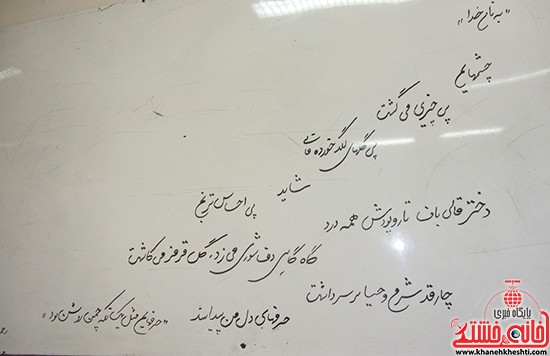 "به نام خدا"
چشمهایم
پی چیزی می گشت
پی گلهای لگد خورده قالی
شاید
پی احساس ترنج
دختر قالی باف تار و پودش همه درد
گاه گاهی دف شوری می زد، گل قرمز می کاشت
چارقد شرم و حیا بر سر داشت
حرفهای دل من پیدایند
"حرفهایم مثل یک تکه چمن روشن بود"
پایگاه خبری
خانه خشتی
www.khanehkheshti.com